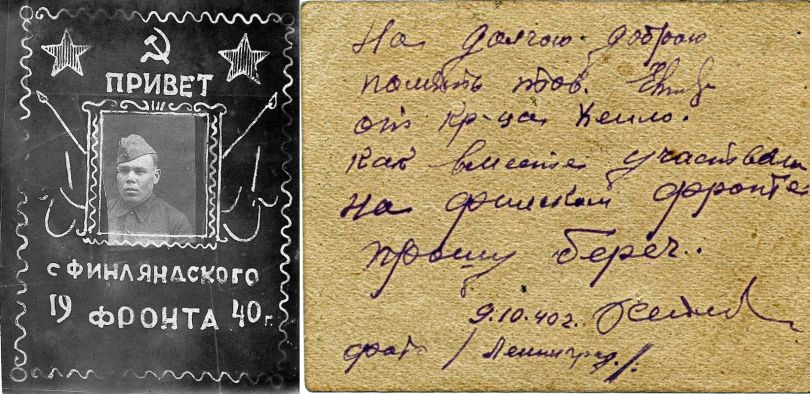 ПРИВЕТ
с ФИНЛЯНДСКОГО
19 ФРОНТА 40 г.
На долгою добрую
память тов.
от кр-ца
как вместе участвали
на финском фронте
прошу береч..
9.10.40 г.
фото / Ленинград /.